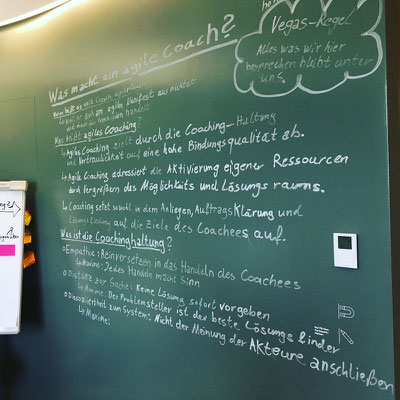 Was macht ein agile Coach?
Vegas-Regel
Alles was wir hier
besprechen bleibt unter
uns.
Wenn
er sich am agilen Manifest ausrichtet
und nach den
Was heißt agiles Coaching?
↳ Agiles Coaching zielt durch die Coaching-Haltung
und Vertraulichkeit auf eine hohe Bindungsqualität ab.
↳ Agile Coaching adressiert die AKtivierung eigener Ressourcen
durch Vergrößern des Möglichkeits und Lösungs raums.
↳ Coaching setzt sowohl in dem Anliegen, Auftrags Klärung und
Lösungsfindung auf die Ziele des Coachees auf.
Was ist die Coachinghaltung?
Empathie: Reinversetzen in das Handeln des Coachees
↳ Maxime: Jedes Handeln macht Sinn
Distanz zur Sache: Keine Lösung sofort vorgeben
↳ Maxime: Der Problemsteller ist der beste Lösungs finder
Dissoziiertheit zum System: Nicht der Meinung der AKteure anschließen
↳ Maxime: